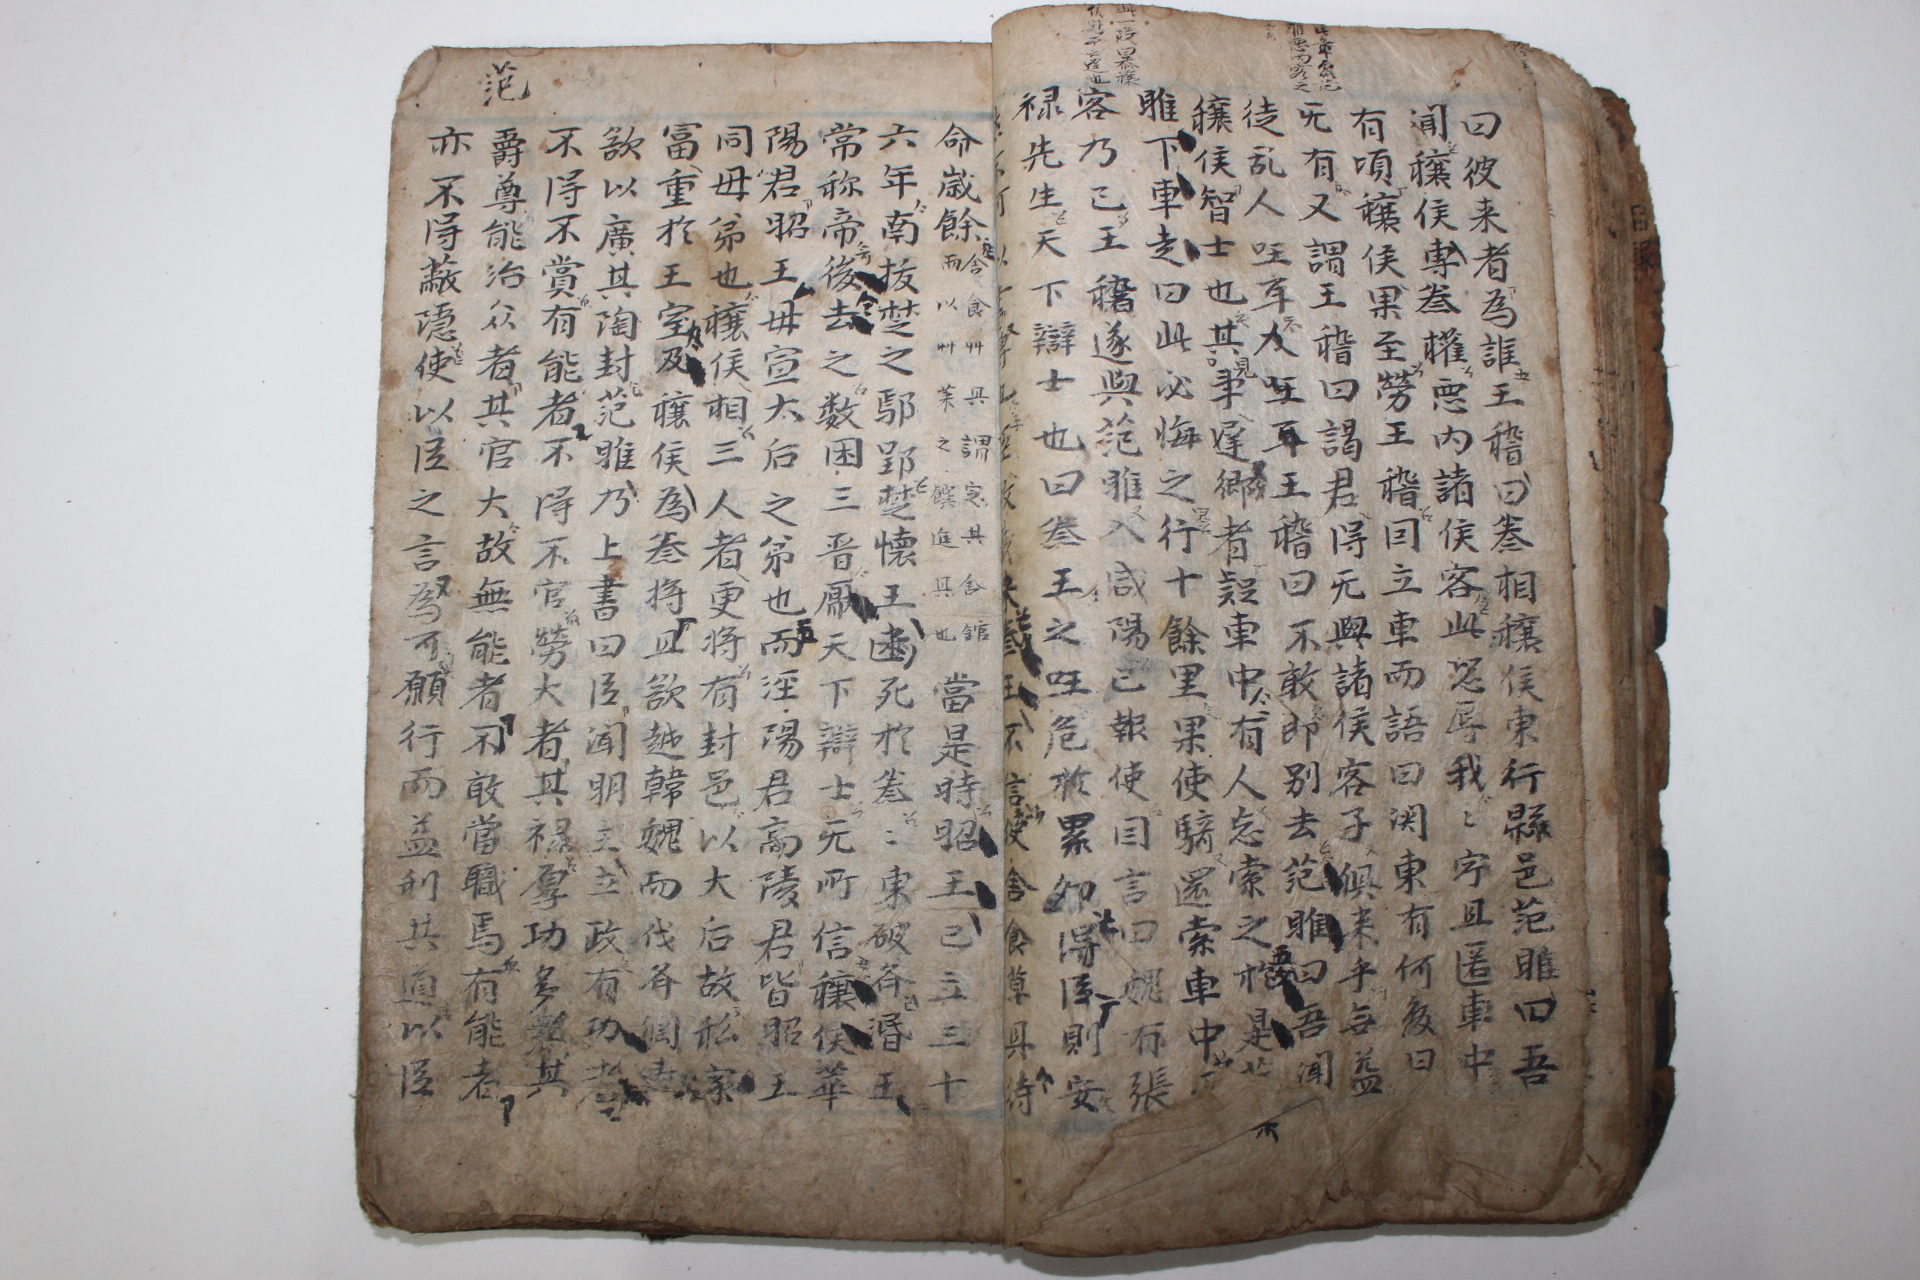 曰彼来者為誰王稽曰秦相穰侯東行縣邑范雎曰吾
聞穰侯專秦權惡內諸侯客此恐辱我〻宁且匿車中
有頃穰侯果至勞王稽囙立車而語曰関東有何変曰
无有又謂王稽曰謁君得无與諸侯客子俱来乎無益
徒乱人国耳王稽曰不敢即别去范雎曰吾聞
穰侯智士也其見事遲鄉者疑車中有人忘索之於是范
雎下車走曰此必悔之行十餘里果使騎還索車中
客乃已王稽遂與范雎入咸陽已報使囙言曰魏有張
禄先生天下辯士也曰秦王之国危於累卵得臣則安
秦王不信使舍食草具待
命歲餘
舍食草具謂空其舍舘
而以草菜之饌進具也
當是時昭王已立三十
六年南拔楚之鄢郢楚懷王幽死於秦〻東破斉湣王
常称帝後去之数困三晋厭天下辯士无所信穰侯華
陽君昭王母宣太后之弟也而涇陽君高陵君皆昭王
同母弟也穰侯相三人者更将有封邑以太后故私家
富重於王室及穰侯為秦将且欲越韓魏而伐斉綱壽
欲以廣其陶封范雎乃上書曰臣聞明主立政有功者
不得不賞有能者不得不官勞大者其禄厚功多者其
爵尊能治众者其官大故無能者不敢當職焉有能者
亦不得蔽隱使以臣之言為可願行而益利其道以臣
范